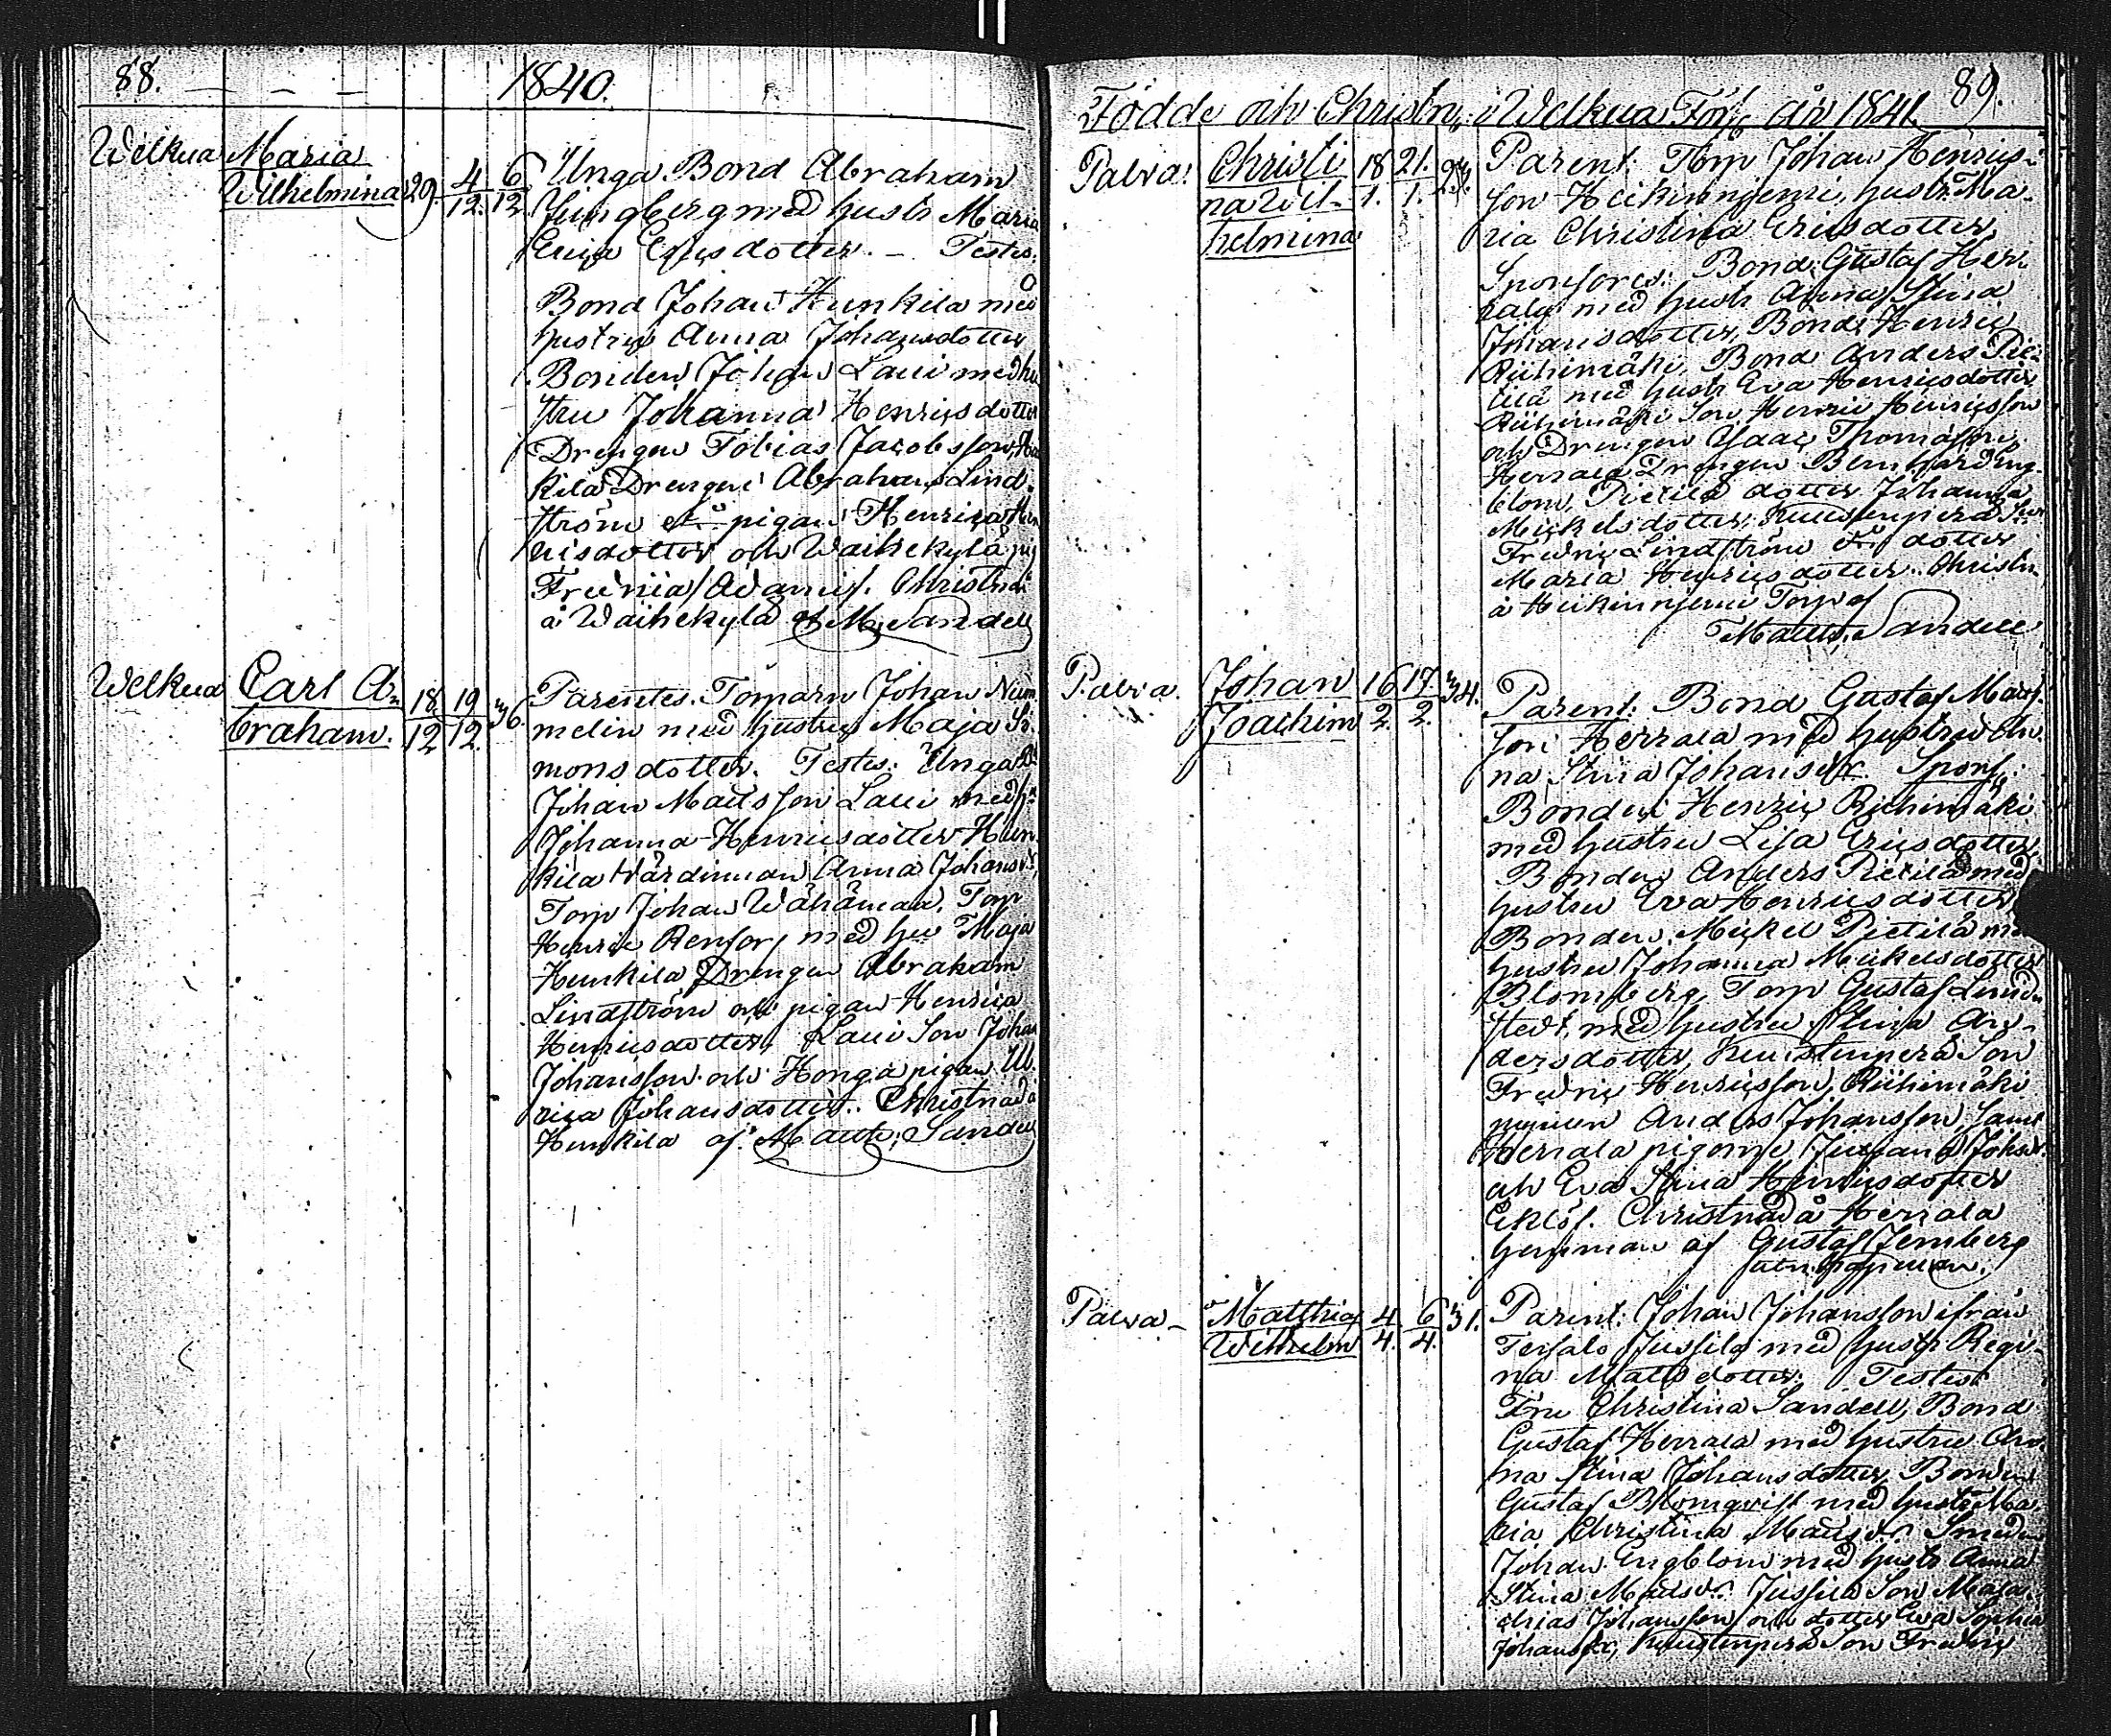 88.
1840.
Welkua Maria
Wilhelmina 29 4/12. 6/12.
Unga Bond Abraham
Jungberg med hustr Maria
Erica Ericsdotter. – Testes.
Bond Johan Hunkila med
hustru Anna Johansdotter
Bonden Johan Lavi med hu
stru Johanna Henricsdotter
Drengen Tobias Jacobsson, Hun
kila Drengen Abraham Lind-
ström och pigan Henrica Hen
ricsdotter och Waihekylä pig
Fredrica Adamsf. Christnad
å Waihekylä af M. Sandell
Welkua Carl A-
braham. 18/12 19/12. 36.
Parentes. Torparn Johan Num
melin med hustru Maja Si
monsdotter. Testes: Unga B:
Johan Matsson Lavi med h:
Johanna Henricsdotter Hun
kila Wärdinnan Anna Johansd:
Torp Johan Wähämaa, Torp
Henric Renfors med hu Maja
Hunkila Drengen Abraham
Lindström och pigan Henrica
Henricsdotter, Lavi Son Johan
Johansson och Honga pigan Ul.
rica Johansdotter. Christnad å
Hunkila af Matth: Sandell
89.
Födde och Christn, i Welkua Förs. År 1841.
Palva. Christi
na Wil-
helmina 18/1. 21./1.
Parent. Torp Johan Henrics-
son Heikinnjemi, hustr. Ma-
ria Christina Ericsdotter,
Sponsores: Bond: Gustaf Her-
rala med hustr Anna Stina
Johansdotter, Bond: Henric
Riihimäki, Bond Anders Pie-
tilä med hustr Eva Henricsdotter
Riihimäki Son Henric Henricsson
och Drengen Isaac Thomasson,
Herrala Drengen Bernhard Eng-
blom, Pietilä dotter Johanna
Mickelsdotter, Kuustenperä Son
Fredric Lindström och dotter
Maria Henricsdotter. Christn.
å Heikinnjemi Torp af
Matth. Sandell
Palva. Johan
Joachim 16/2. 17/2. 34.
Parent: Bond Gustaf Mats-
son Herrala med hustru An-
na Stina Johansdtr. Spons:
Bonden Henric Riihimäki
med hustru Lisa Ericsdotter,
Bonden Anders Pietilä med
hustru Eva Henricsdotter
Bonden Mickel Pietilä med
hustru Johanna Mickelsdotter
Blomberg, Torp Gustaf Lind-
stedt, med hustru Stina An-
dersdotter, Kuustenperä Son
Fredric Henricsson, Riihimäki
Anders Johansson, samt
Herrala pigorne Johansd:
och Eva Stina Henricsdotter
Eklöf. Christnad å Herrala
hemman af Gustaf Jernberg
Palva – Matthias
Wilhelm 4/4. 6/4. 31.
Parent: Johan Johansson ifrån
Teersalo Jussila med hustr Regi-
na Mattsdotter. Testes:
Fru Christina Sandell, Bond
Gustaf Herrala med hustru An-
na Stina Johansdotter, Bonden
Gustaf Blomqvist med hustr Ma
ria Christina Matsdr. Smeden
Johan Engblom med hustr Anna
Stina Matsdr. Jussila Son Matt
hias Johansson och dotter Eva Sophia
Johansdr, Kuustenperä Son Fredric